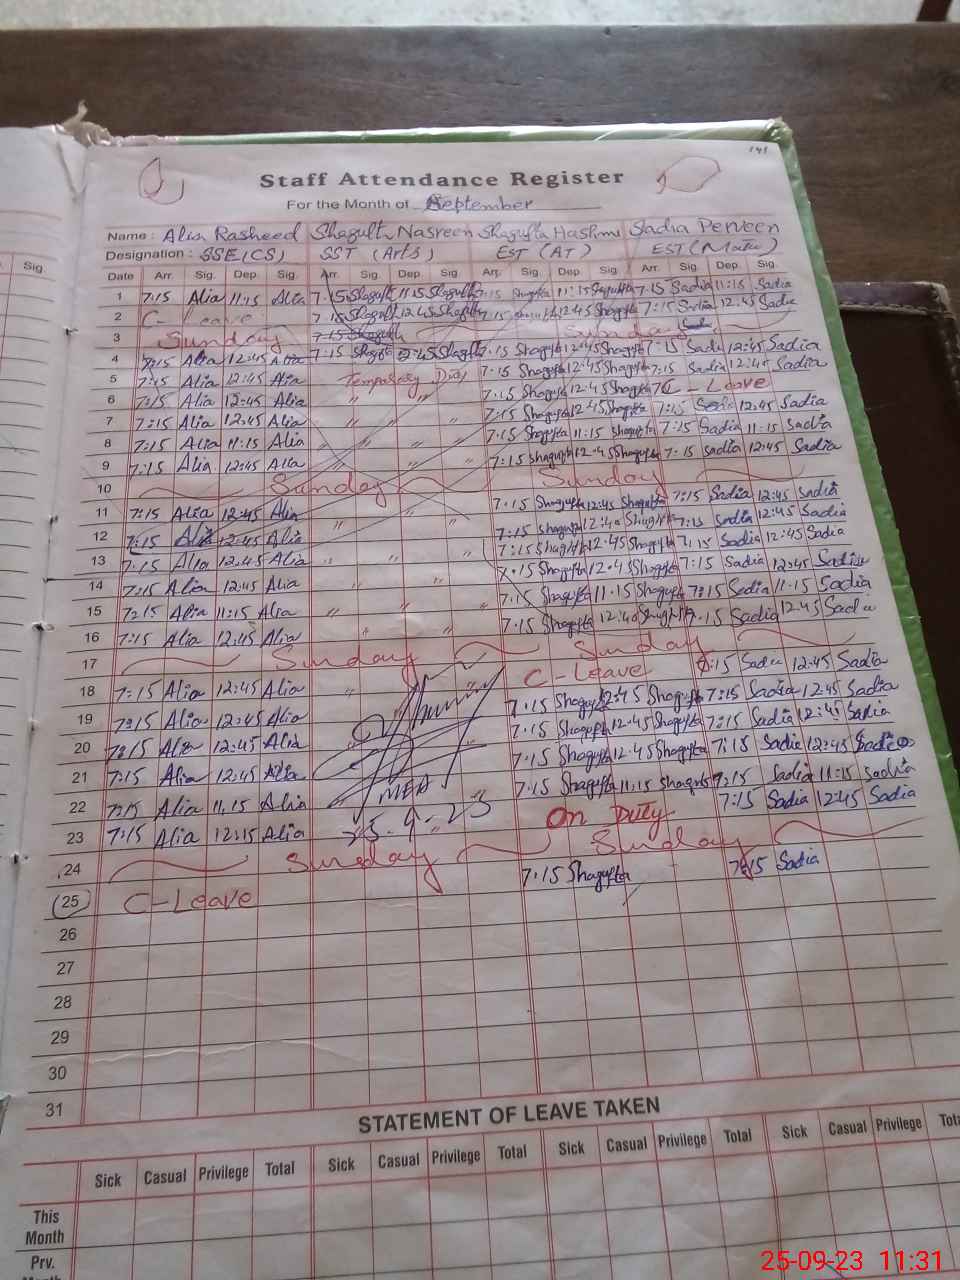 141
Staff Attendance Register
For the Month of September
Name : Alia Rasheed Shagufta Nasreen Shagufta Hashmi Sadia Perveen
Designation : SSE(CS) SST (Arts) EST (AT) EST (Math)
Sig.
Date Arr. Sig. Dep. Sig. Arr. Sig. Dep. Sig. Arr. Sig. Dep. Sig. Arr. Sig. Dep. Sig.
1 7:15 Alia 11:15 Alia 7:15 Shagufta 11:15 Shagufta 7:15 Shagufta 11:15 Shagufta 7:15 Sadia 11:15 Sadia
2 C- Leave 7:15 Shagufta 12:45 Shagufta 7:15 12:45 Shagufta 7:15 Sadia 12:45 Sadia
3 Sunday 7:15 Shagufta Sunday
4 7:15 Alia 12:45 Alia 7:15 Shagufta 12:45 Shagufta 7:15 Shagufta 12:45 Shagufta 7:15 Sadia 12:45 Sadia
5 7:15 Alia 12:45 Alia Temporary Duty 7:15 Shagufta 12:45 Shagufta 7:15 Sadia 12:45 Sadia
6 7:15 Alia 12:45 Alia " " 7:15 Shagufta 12:45 Shagufta C- Leave
7 7:15 Alia 12:45 Alia " " 7:15 Shagufta 12:45 Shagufta 7:15 Sadia 12:45 Sadia
8 7:15 Alia 11:15 Alia " " 7:15 Shagufta 11:15 Shagufta 7:15 Sadia 11:15 Sadia
9 7:15 Alia 12:45 Alia " " 7:15 Shagufta 12:45 Shagufta 7:15 Sadia 12:45 Sadia
10 Sunday Sunday
11 7:15 Alia 12:45 Alia " " 7:15 Shagufta 12:45 Shagufta 7:15 Sadia 12:45 Sadia
12 7:15 Alia 12:45 Alia " " 7:15 Shagufta 12:40 Shagufta 7:15 Sadia 12:45 Sadia
13 7:15 Alia 12:45 Alia " " 7:15 Shagufta 12:45 Shagufta 7:15 Sadia 12:45 Sadia
14 7:15 Alia 12:45 Alia " " 7:15 Shagufta 12:45 Shagufta 7:15 Sadia 12:45 Sadia
15 7:15 Alia 11:15 Alia " " " 7:15 Shagufta 11:15 Shagufta 7:15 Sadia 11:15 Sadia
16 7:15 Alia 12:45 Alia " " 7:15 Shagufta 12:40 Shagufta 7:15 Sadia 12:45 Sadia
17 Sunday Sunday
18 7:15 Alia 12:45 Alia " C-Leave 7:15 Sadia 12:45 Sadia
19 7:15 Alia 12:45 Alia 7:15 Shagufta 12:45 Shagufta 7:15 Sadia 12:45 Sadia
20 7:15 Alia 12:45 Alia 7:15 Shagufta 12:45 Shagufta 7:15 Sadia 12:45 Sadia
21 7:15 Alia 12:45 Alia 7:15 Shagufta 12:45 Shagufta 7:15 Sadia 12:45 Sadia
22 7:15 Alia 11:15 Alia MEA 7:15 Shagufta 11:15 Shagufta 7:15 Sadia 11:15 Sadia
23 7:15 Alia 12:15 Alia 25-9-23 On Duty 7:15 Sadia 12:45 Sadia
24 Sunday Sunday
25 C-Leave 7:15 Shagufta 7:15 Sadia
26
27
28
29
30
31
STATEMENT OF LEAVE TAKEN
Sick Casual Privilege Total Sick Casual Privilege Total Sick Casual Privilege Total Sick Casual Privilege
This
Month
Prv.
25-09-23 11:31